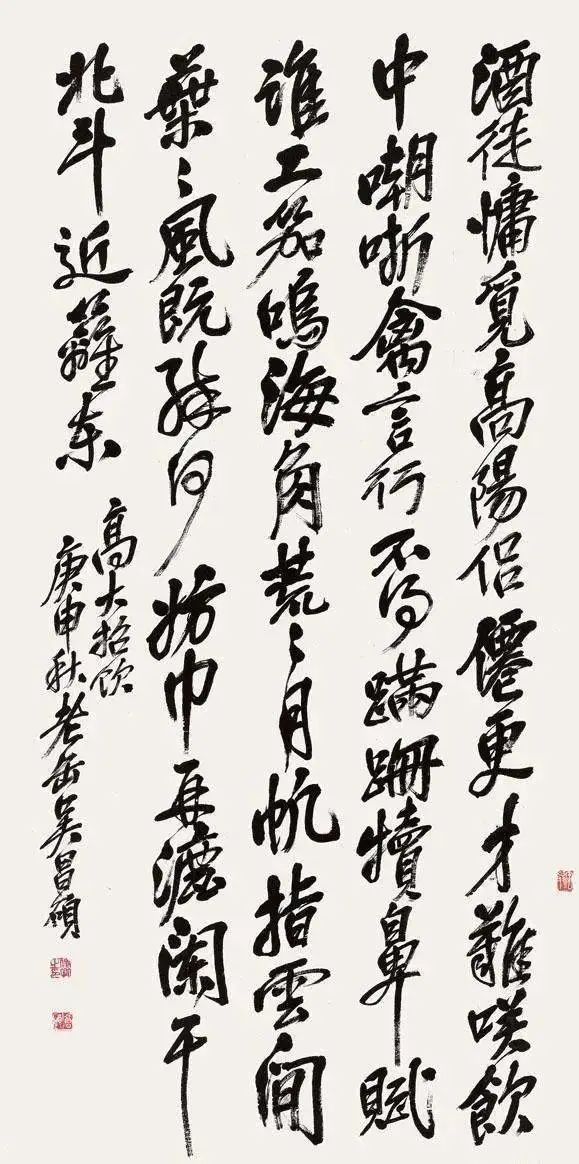 酒徒慵覓高陽侶僊更才難咲飲
中嘲哳禽言行不得蹣跚犢鼻賦
誰工笳鳴海角荒〻月帆指雲間
葉〻風既醉何妨巾再漉闌干
北斗近籬東
高大招飲
庚申秋老缶吳昌碩